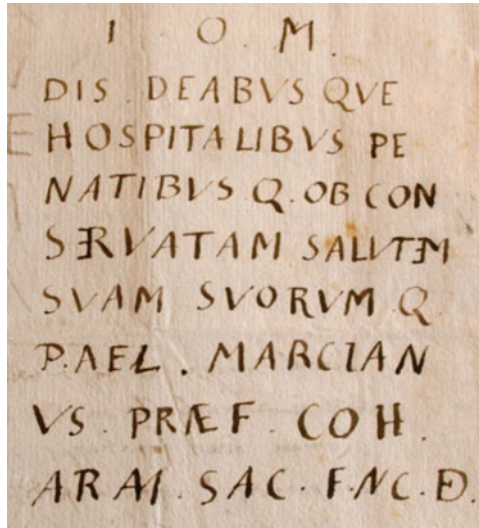 I . O . M .
DIS . DEABVS QVE
HOSPITALIBVS PE
NATIBVS Q . OB CON
SERVATAM SALVTEM
SVAM SVORVM Q
P . AEL . MARCIAN
VS . PRÆF . COH .
ARAM . SAC . F . NC . Ð .